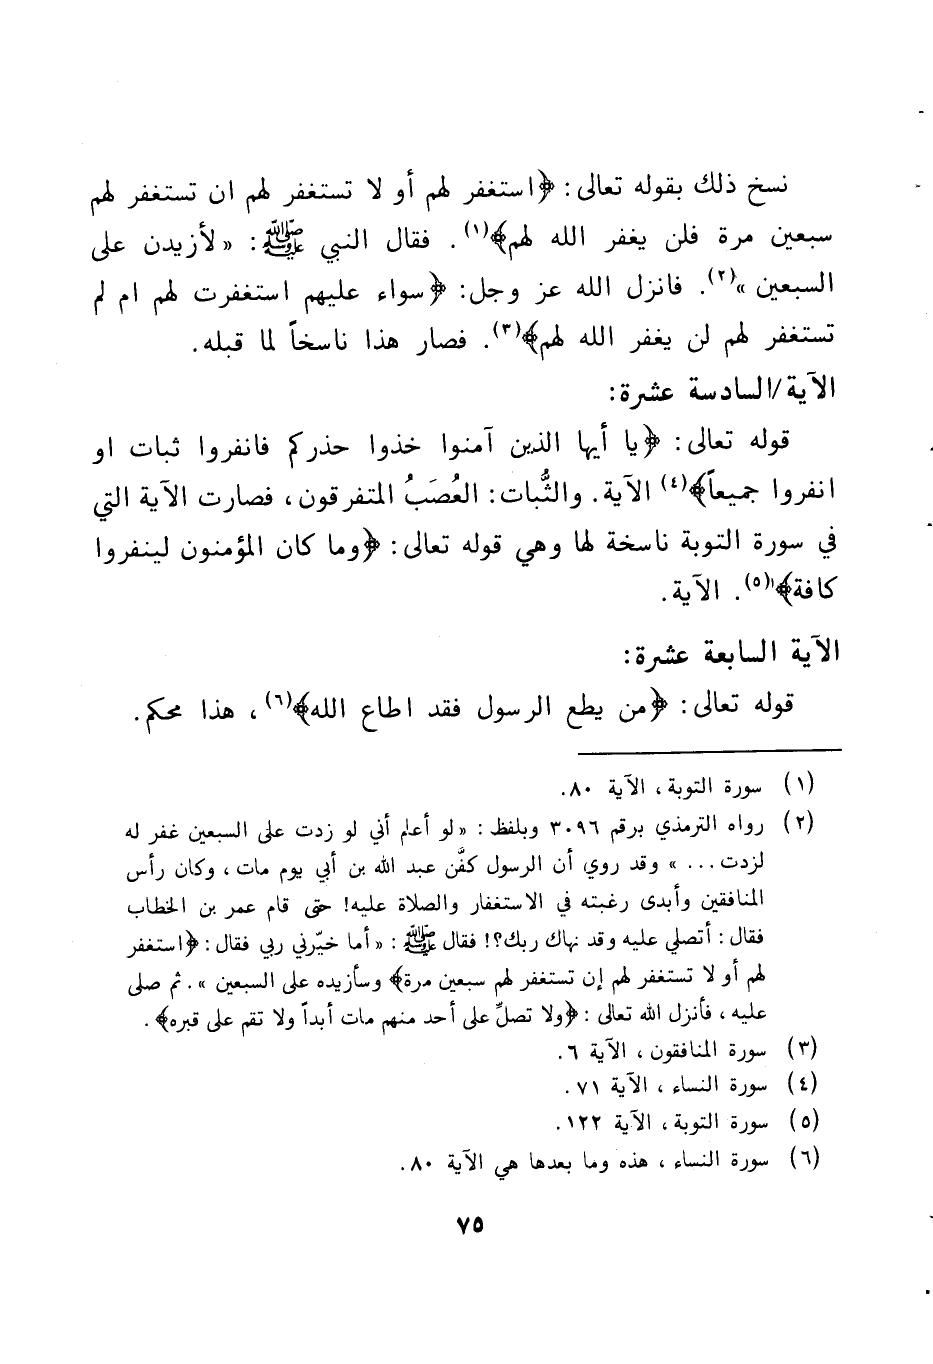 نسخ ذلك بقوله تعالى: ﴿استغفر لهم أو لا تستغفر لهم ان تستغفر لهم
سبعين مرة فلن يغفر الله لهم﴾(١). فقال النبي ﷺ: «لأزيدن على
السبعين»(٢). فانزل الله عز وجل: ﴿سواء عليهم استغفرت لهم ام لم
تستغفر لهم لن يغفر الله لهم﴾(٣). فصار هذا ناسخاً لما قبله.
الآية/السادسة عشرة:
قوله تعالى: ﴿يا أيها الذين آمنوا خذوا حذركم فانفروا ثبات او
انفروا جميعاً﴾(٤) الآية. والثُّبات: العُصَبُ المتفرقون، فصارت الآية التي
في سورة التوبة ناسخة لها وهي قوله تعالى: ﴿وما كان المؤمنون لينفروا
كافة﴾(٥). الآية.
الآية السابعة عشرة:
قوله تعالى: ﴿من يطع الرسول فقد اطاع الله﴾(٦)، هذا محكم.
(١) سورة التوبة، الآية ٨٠.
(٢) رواه الترمذي برقم ٣٠٩٦ وبلفظ: «لو أعلم أني لو زدت على السبعين غفر له
لزدت...» وقد روي أن الرسول كفَّن عبد الله بن أبي يوم مات، وكان رأس
المنافقين وأبدى رغبته في الاستغفار والصلاة عليه! حتى قام عمر بن الخطاب
فقال: أتصلي عليه وقد نهاك ربك؟! فقال ﷺ: «أما خيّرني ربي فقال: ﴿استغفر
لهم أو لا تستغفر لهم إن تستغفر لهم سبعين مرة﴾ وسأزيده على السبعين». ثم صلى
عليه، فأنزل الله تعالى: ﴿ولا تصلِّ على أحد منهم مات أبداً ولا تقم على قبره﴾.
(٣) سورة المنافقون، الآية ٦.
(٤) سورة النساء، الآية ٧١.
(٥) سورة التوبة، الآية ١٢٢.
(٦) سورة النساء، هذه وما بعدها هي الآية ٨٠.
٧٥